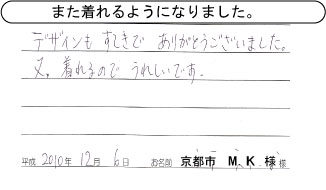 また着れるようになりました。
デザインも すてきで ありがとうございました。
又、着れるので うれしいです。
平成 2010年 12月 6日 お名前 京都市 M. K 様 様